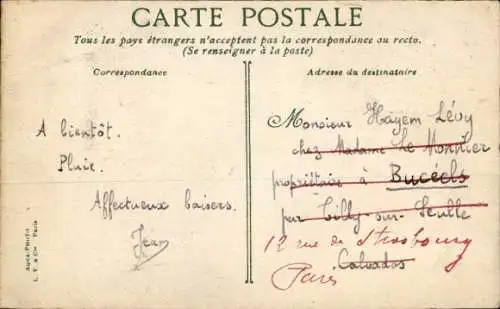 CARTE POSTALE
Tous les pays étrangers n'acceptent pas la correspondance au recto.
(Se renseigner à la poste)
Correspondance
A bientôt.
Pluie.
Affectueux baisers.
Jean
Aqua-Photo
L. V. & Cie Paris
Adresse du destinataire
Monsieur Hayem Lévy
chez Madame Le Monnier
propriétaire à Bucéels
par Tilly-sur-Seulle
12 rue de Strasbourg
Calvados
Paris